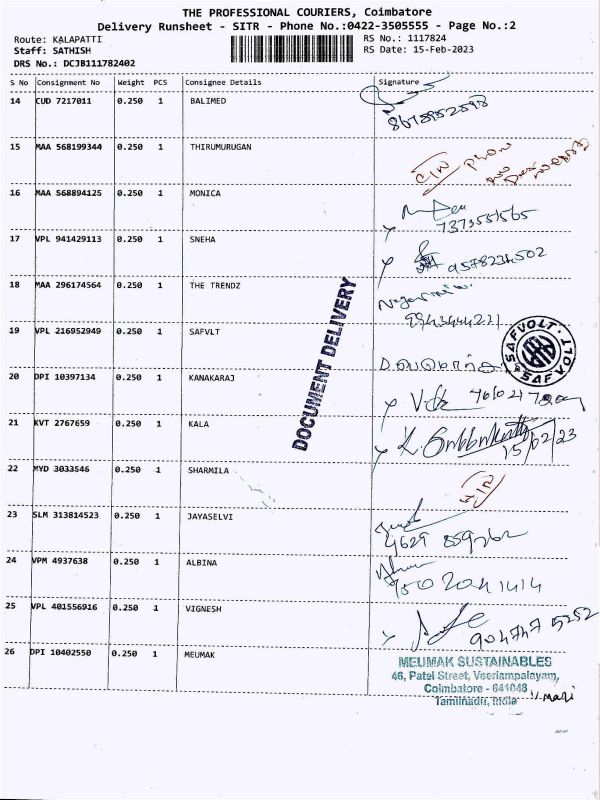 THE PROFESSIONAL COURIERS, Coimbatore
Delivery Runsheet - SITR - Phone No.:0422-3505555 - Page No.:2
Route: KALAPATTI
RS No.: 1117824
Staff: SATHISH
RS Date: 15-Feb-2023
DRS No.: DCJB111782402
S No Consignment No Weight PCS Consignee Details Signature
14 CUD 7217011 0.250 1 BALIMED
15 MAA 568199344 0.250 1 THIRUMURUGAN
16 MAA 568894125 0.250 1 MONICA
7373551565
17 VPL 941429113 0.250 1 SNEHA
9578234502
18 MAA 296174564 0.250 1 THE TRENDZ
9943444221
19 VPL 216952949 0.250 1 SAFVLT
SAFVOLT
20 DPI 10397134 0.250 1 KANAKARAJ
21 KVT 2767659 0.250 1 KALA
15/02/23
22 MYD 3033546 0.250 1 SHARMILA
23 SLM 313814523 0.250 1 JAYASELVI
24 VPM 4937638 0.250 1 ALBINA
25 VPL 401556916 0.250 1 VIGNESH
904747 5252
26 DPI 10402550 0.250 1 MEUMAK
MEUMAK SUSTAINABLES
46, Patel Street, Veeriampalayam,
Coimbatore - 641048
Tamilnadu, India
DOCUMENT DELIVERY